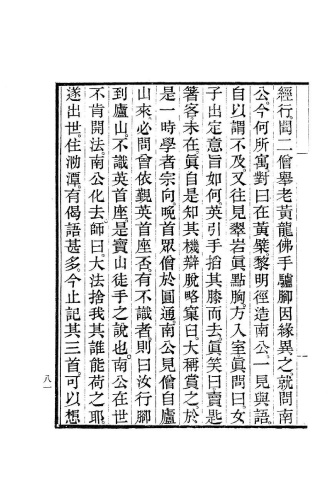 經行聞二僧舉老黃龍佛手驢脚因緣異之就問南
公今何所寓對曰在黃檗黎明徑造南公一見與語
自以謂不及又往見翠岩眞點胸方入室眞問曰女
子出定意旨如何英引手掐其膝而去眞笑曰賣匙
箸客未在眞自是知其機辯脫略窠臼大稱賞之於
是一時學者宗向晚首眾僧於圓通南公見僧自廬
山來必問曾依覲英首座否有不識者則曰汝行脚
到廬山不識英首座是賣山徒手之說也南公在世
不肯開法南公化去師曰大法捨我其誰能荷之耶
遂出世住泐潭有偈語甚多今止記其三首可以想
八一